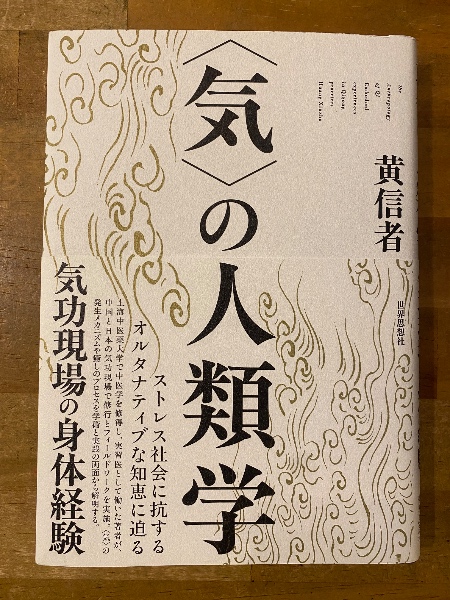 〈気〉の人類学
The
Anthropology
of Qi
Embodied
experiences
in Qigong
practices
Huang Xinzhe
黄信者
世界思想社
ストレス社会に抗する
オルタナティブな知恵に迫る
上海中医薬大学で中医学を修得し、実習医として働いた著者が、
中国と日本の気功現場で修行とフィールドワークを実施。〈気〉の
発生メカニズムや癒しのプロセスを学術と実践の両面から解明する。
気功現場の身体経験